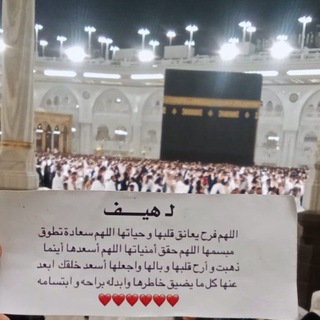 لـ هيـــف
اللهم فرح يعانق قلبها و حياتها اللهم سعادة تطوق
مبسمها اللهم حقق أمنياتها اللهم أسعدها أينما
ذهبت و أرح قلبها و بالها واجعلها أسعد خلقك ابعد
عنها كل ما يضيق خاطرها وابدله براحه و ابتسامه
❤❤❤❤❤❤